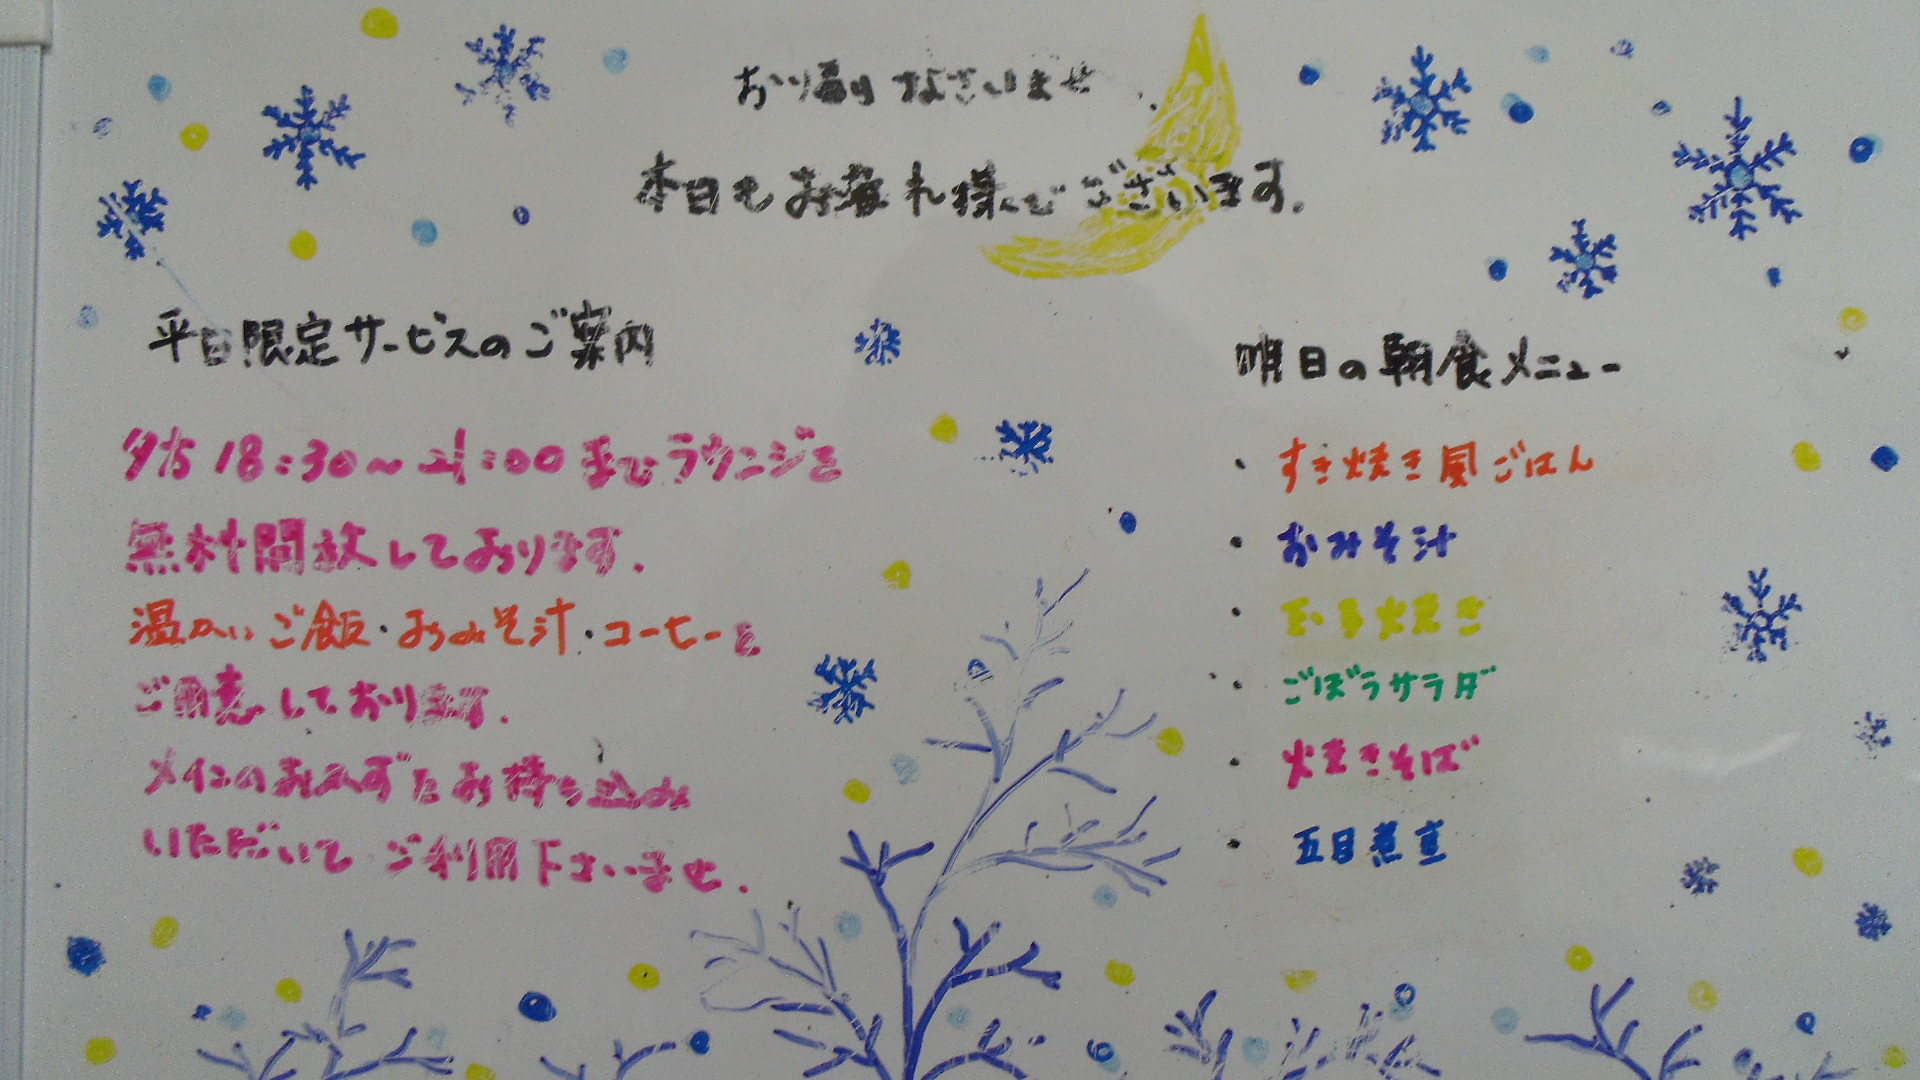 お帰りなさいませ
本日もお疲れ様でございます。
平日限定サービスのご案内
夕方 18:30～21:00までラウンジを
無料開放しております。
温かいご飯・おみそ汁・コーヒーを
ご用意しております。
メインのおかずをお持ち込み
いただいて ご利用下さいませ。
明日の朝食メニュー
・すき焼き風ごはん
・おみそ汁
・玉子焼き
・ごぼうサラダ
・焼きそば
・五目煮豆